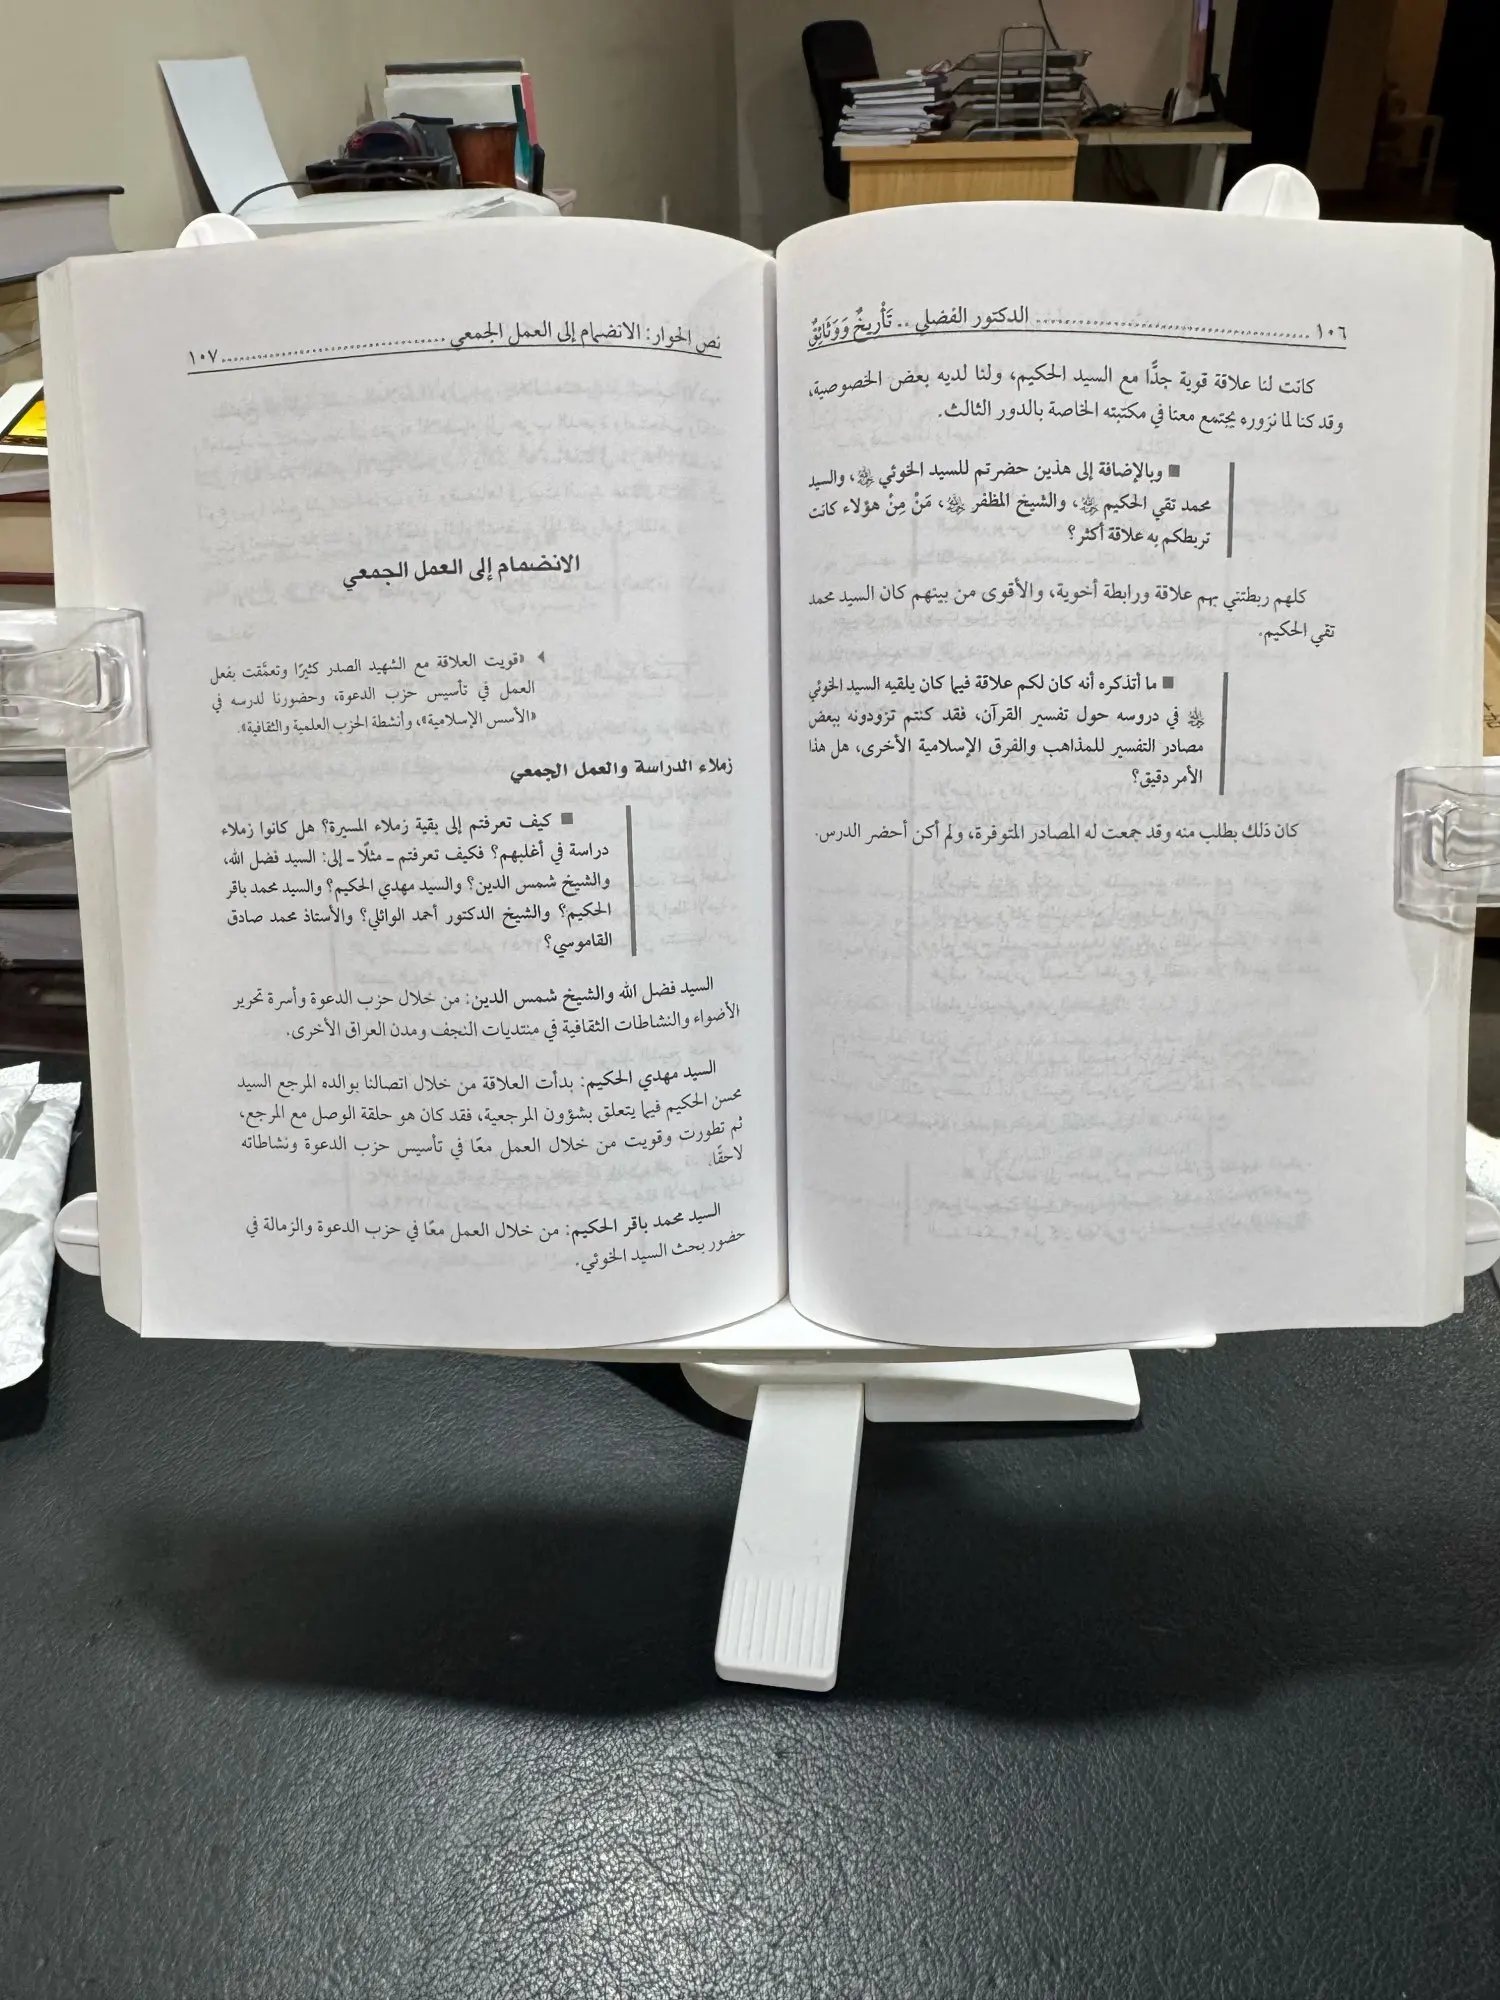 ١٠٦ ........ الدكتور الفضلي .. تَأْرِيخٌ وَوَثَائِقٌ
كانت لنا علاقة قوية جدًّا مع السيد الحكيم، ولنا لديه بعض الخصوصية،
وقد كنا لما نزوره يجتمع معنا في مكتبته الخاصة بالدور الثالث.
■ وبالإضافة إلى هذين حضرتم للسيد الخوئي، والسيد
محمد تقي الحكيم، والشيخ المظفر، مَنْ مِنْ هؤلاء كانت
تربطكم به علاقة أكثر؟
كلهم ربطتني بهم علاقة ورابطة أخوية، والأقوى من بينهم كان السيد محمد
تقي الحكيم.
■ ما أتذكره أنه كان لكم علاقة فيما كان يلقيه السيد الخوئي
في دروسه حول تفسير القرآن، فقد كنتم تزودونه ببعض
مصادر التفسير للمذاهب والفرق الإسلامية الأخرى، هل هذا
الأمر دقيق؟
كان ذلك بطلب منه وقد جمعت له المصادر المتوفرة، ولم أكن أحضر الدرس.
نص الحوار: الانضمام إلى العمل الجمعي ........ ١٠٧
الانضمام إلى العمل الجمعي
«قويت العلاقة مع الشهيد الصدر كثيرًا وتعمَّقت بفعل
العمل في تأسيس حزب الدعوة، وحضورنا لدرسه في
«الأسس الإسلامية»، وأنشطة الحزب العلمية والثقافية».
زملاء الدراسة والعمل الجمعي
■ كيف تعرفتم إلى بقية زملاء المسيرة؟ هل كانوا زملاء
دراسة في أغلبهم؟ فكيف تعرفتم ـ مثلًا ـ إلى: السيد فضل الله،
والشيخ شمس الدين؟ والسيد مهدي الحكيم؟ والسيد محمد باقر
الحكيم؟ والشيخ الدكتور أحمد الوائلي؟ والأستاذ محمد صادق
القاموسي؟
السيد فضل الله والشيخ شمس الدين: من خلال حزب الدعوة وأسرة تحرير
الأضواء والنشاطات الثقافية في منتديات النجف ومدن العراق الأخرى.
السيد مهدي الحكيم: بدأت العلاقة من خلال اتصالنا بوالده المرجع السيد
محسن الحكيم فيما يتعلق بشؤون المرجعية، فقد كان هو حلقة الوصل مع المرجع،
ثم تطورت وقويت من خلال العمل معًا في تأسيس حزب الدعوة ونشاطاته
لاحقًا.
السيد محمد باقر الحكيم: من خلال العمل معًا في حزب الدعوة والزمالة في
حضور بحث السيد الخوئي.